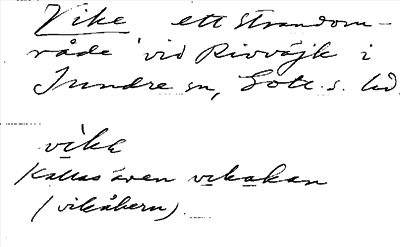 Vike ett strandom-
råde vid Rivvájk i
Sundre sn, Gotl. s. hd.
vikẹ
Kallas även vikakan
(vikåkern).